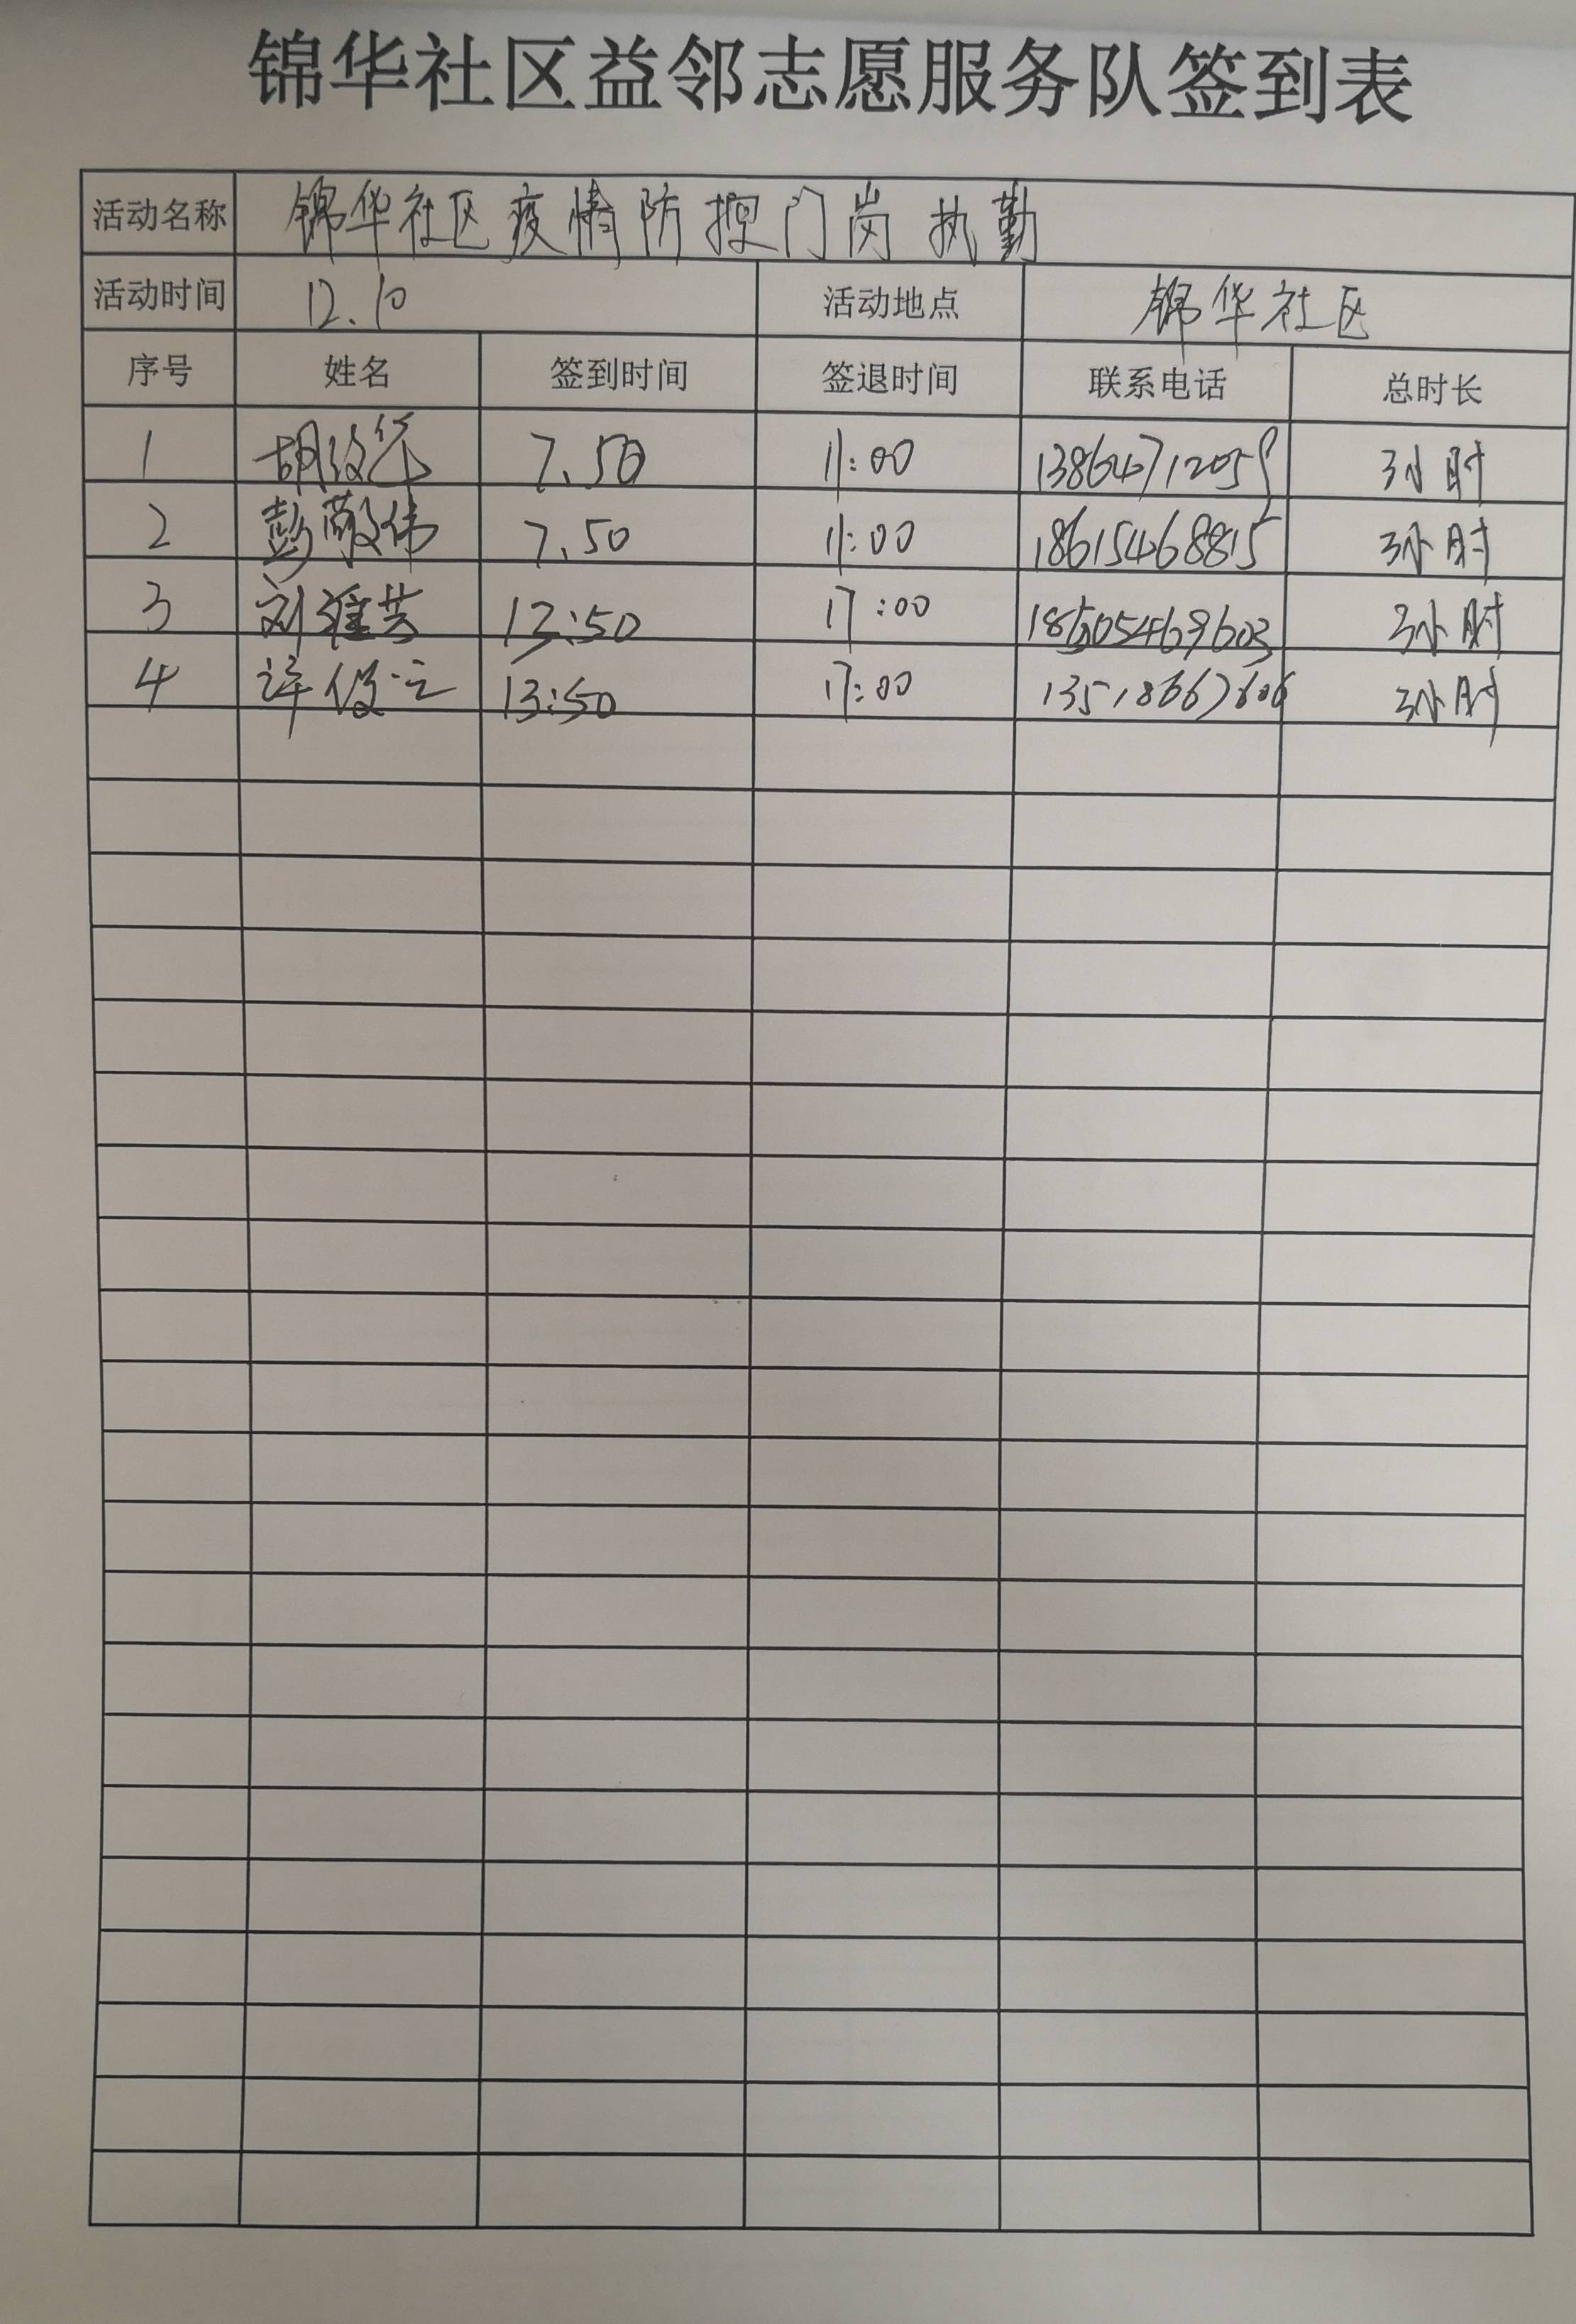 锦华社区益邻志愿服务队签到表
活动名称 锦华社区疫情防控门岗执勤
活动时间 12.10 活动地点 锦华社区
序号 姓名 签到时间 签退时间 联系电话 总时长
1 胡 7.50 11:00 13864712059 3小时
2 彭敬伟 7.50 11:00 18615468815 3小时
3 刘 13:50 17:00 18605469603 3小时
4 13:50 17:00 3小时